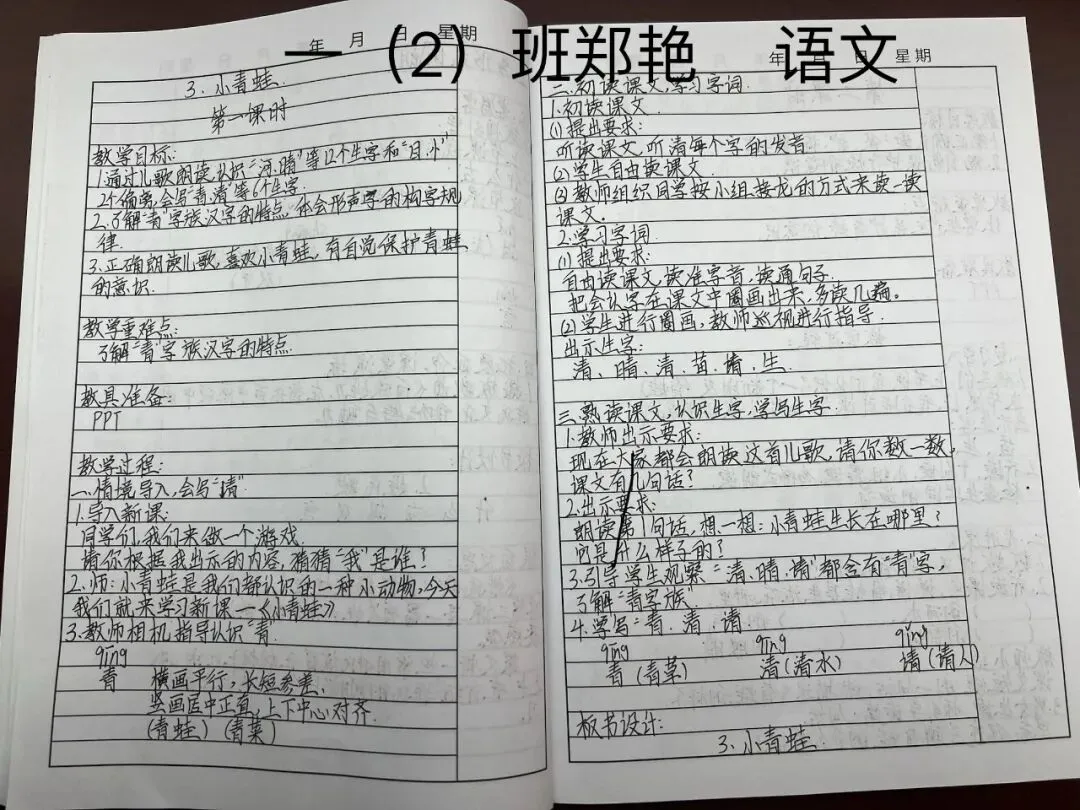 一（2）班郑艳 语文
年 月 日 星期
3. 小青蛙.
第一课时
教学目标:
1.通过儿歌朗读认识"河、晴"等12个生字和"目、忄"
2个偏旁,会写"青、清"等6个生字.
2.了解"青"字族汉字的特点,体会形声字的构字规
律.
3.正确朗读儿歌,喜欢小青蛙,有自觉保护青蛙
的意识.
教学重难点:
了解"青"字族汉字的特点.
教具准备:
PPT
教学过程:
一.情境导入,会写"请".
1.导入新课:
同学们,我们来做一个游戏.
请你根据我出示的内容,猜猜"我"是谁?
2.师:小青蛙是我们都认识的一种小动物,今天
我们就来学习新课一《小青蛙》
3.教师相机指导认识"青".
qīng
青 横画平行,长短参差.
竖画居中正直,上下中心对齐.
(青蛙) (青菜)
年 月 日 星期
二.初读课文,学习字词.
1.初读课文.
(1)提出要求:
听读课文,听清每个字的发音.
(2)学生自由读课文.
(3)教师组织同学按小组接龙的方式来读一读
课文.
2.学习字词.
(1)提出要求:
自由读课文,读准字音,读通句子.
把会认字在课文中圈画出来,多读几遍。
(2)学生进行圈画,教师巡视进行指导.
出示生字:
清、晴、清、苗、请、生.
三.熟读课文,认识生字,学写生字.
1.教师出示要求:
现在大家都会朗读这首儿歌,请你数一数,
课文有几句话?
2.出示要求:
朗读第1句话,想一想:小青蛙生长在哪里?
它是什么样子的?
3.引导学生观察"清、晴、请"都含有"青"字,
了解"青字族".
4.学写"青、清、请
qīng qīng qǐng
青(青草) 清(清水) 请(请人)
板书设计:
3.小青蛙.